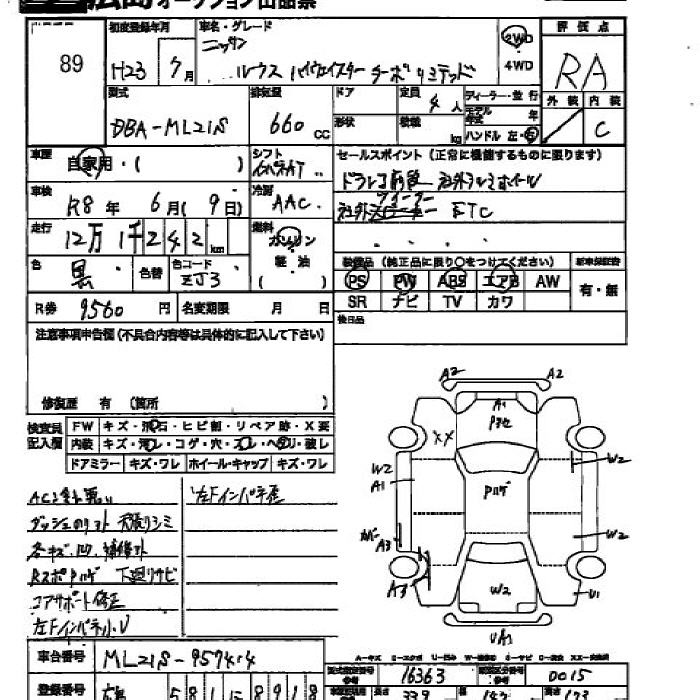 広島 オークション出品票
89
初度登録年月 H23 7月
車名・グレード ニッサン ルークス ハイウェイスター ターボリミテッド
2WD 4WD
評価点 RA
外装 内装 C
型式 DBA-ML21S
排気量 660 CC
ドア 定員 4人
形状 積載 kg
ディーラー・並行
モデル年式 年
ハンドル 左・右
車歴 自家用・( )
シフト
車検 R8年 6月(9日)
冷房 AAC
走行 12万1千242km
燃料 ガソリン 軽油 ( )
色 黒 色替 色コード ZJ3
R券 9560円 名変期限 月 日
セールスポイント (正常に機能するものに限ります)
ドラレコ前後 社外アルミホイール
社外 ETC
装備品 (純正品に限り○をつけてください) 新車保証書
PS PW ABS エアB AW 有・無
SR ナビ TV カワ
後日品
注意事項申告欄(不具合内容等は具体的に記入して下さい)
修復歴 有 (箇所 )
検査員記入欄
FW キズ・飛石・ヒビ割・リペア跡・X要
内装 キズ・汚レ・コゲ・穴・スレ・ヘタリ・破レ
ドアミラー キズ・ワレ ホイール・キャップ キズ・ワレ
左Fインパネ歪
各キズ、凹、補修跡
下廻りサビ
コアサポート修正
左Fインパネ小U
A2 A2
A1
XX
W2 A1
Pハゲ
W2
A3
W2
A3
W2
U1
UA1
車台番号 ML21S-957414
型式指定番号 16363 類別区分番号 0015
登録番号